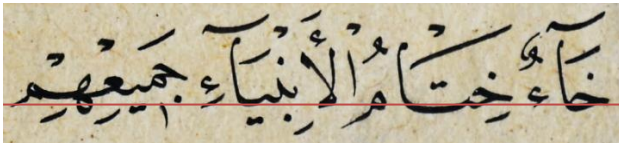 خَآءٌ خِتَامُ الْأَنْبِيَآءِ جَمِيعِهِمْ